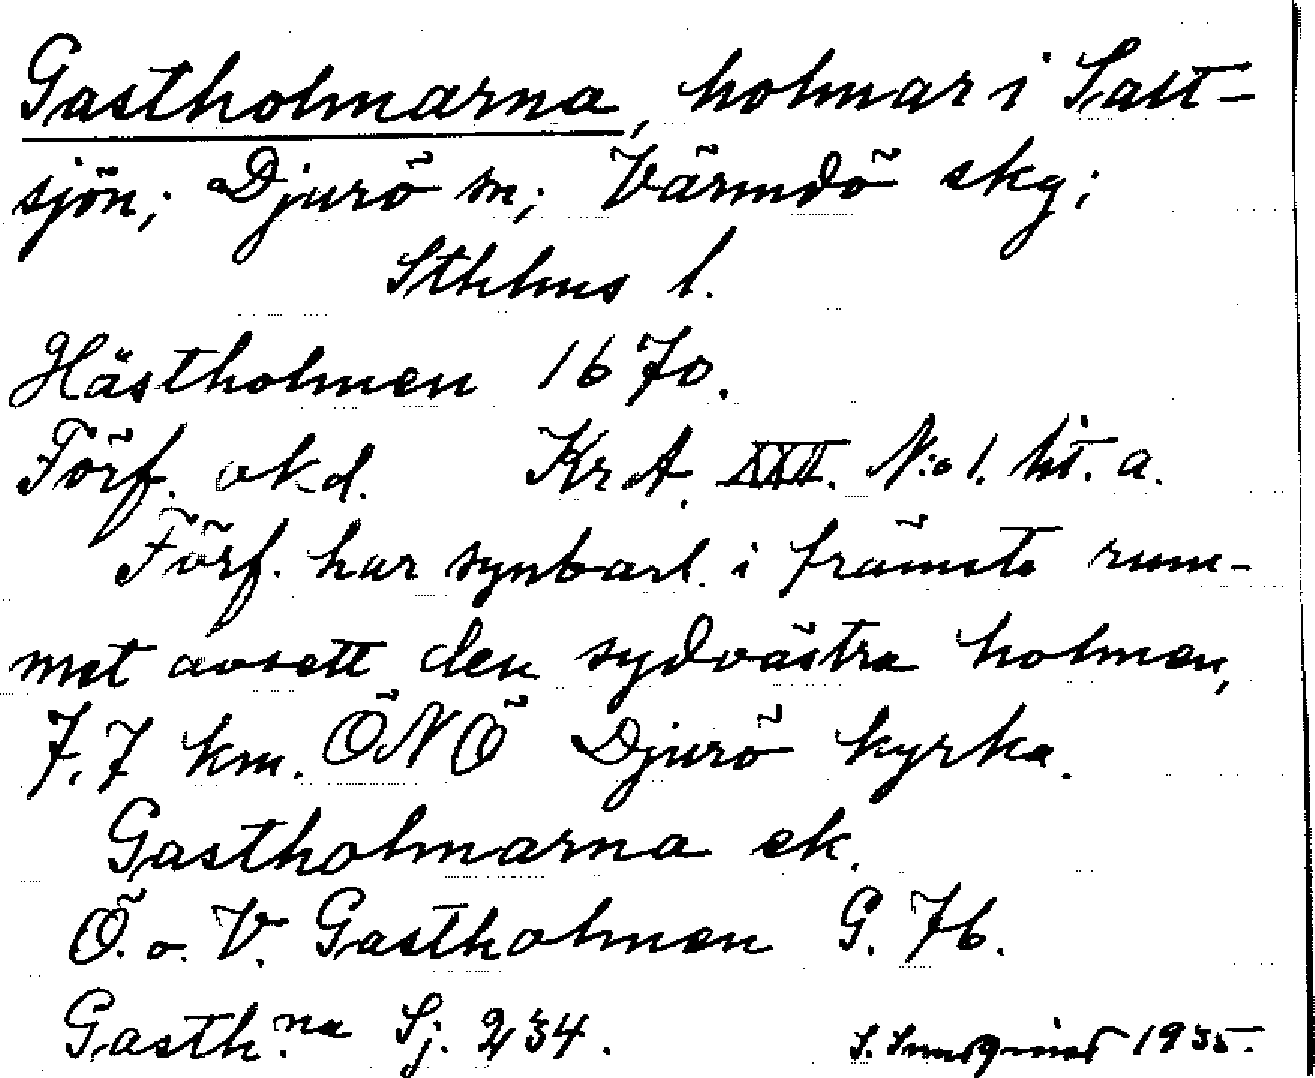 Gastholmarna, holmar i Salt-
sjön; Djurö sn; Värmdö skg;
Sthlms l.
Hästholmen 1670.
Förf. okd. KrA. XXII. N:o 1. lit. a.
Förf. har synbarl. i främsta rum-
met avsett den sydvästra holmen,
7.7 km. ÖNÖ Djurö kyrka.
Gastholmarna ek.
Ö. o. V. Gastholmen G. 76.
Gasth:na Sj. 234.
1935.